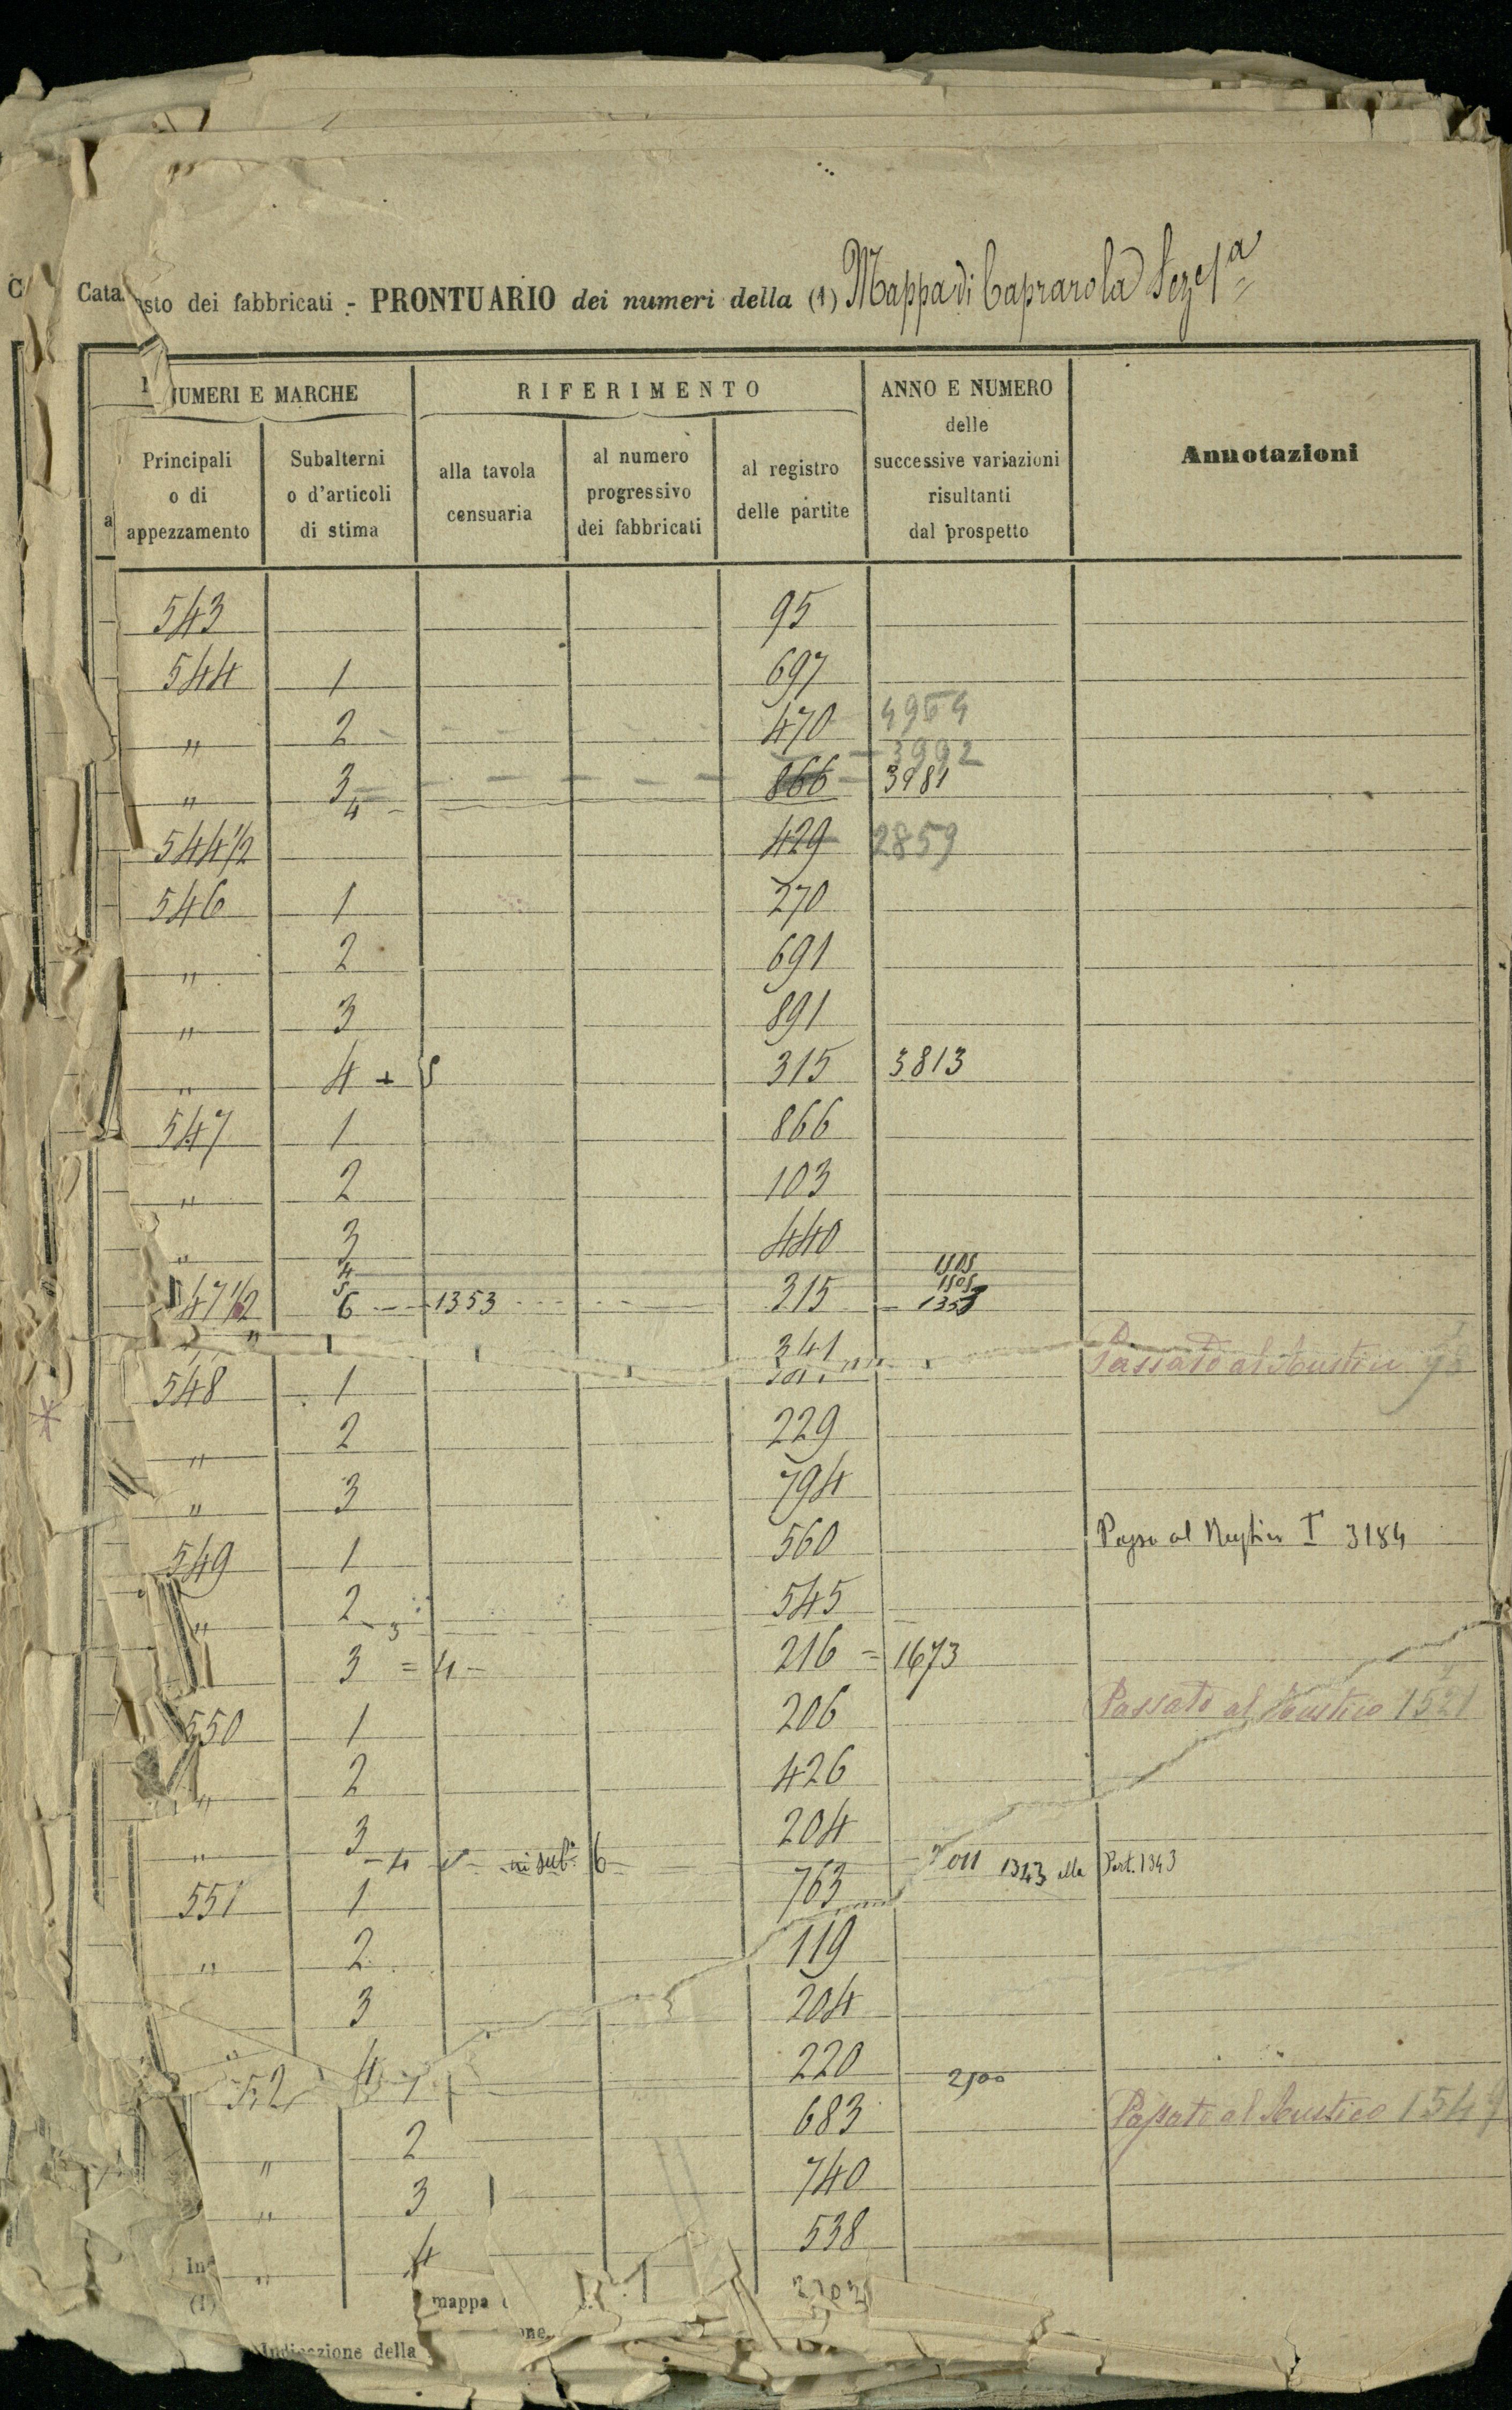 Catasto dei fabbricati - PRONTUARIO dei numeri della (1) Mappa di Caprarola Sez. 1ª
NUMERI E MARCHE
RIFERIMENTO
ANNO E NUMERO
delle
successive variazioni
risultanti
dal prospetto
Annotazioni
Principali
o di
appezzamento
Subalterni
o d'articoli
di stima
alla tavola
censuaria
al numero
progressivo
dei fabbricati
al registro
delle partite
543 95
544 1 697
" 2 470 4954
3992
" 3 866 3981
4
544 1/2 429 2859
546 1 270
" 2 691
" 3 891
" 4 + 5 315 3813
547 1 866
" 2 103
" 3 440
4 1505
5 1505
547 1/2 6 1353 315 1353
" 341
548 1 Passato al Rustico
" 2 229
" 3 794
549 1 560 Passa al Rustico I 3184
" 2 545
3
3 = 4 - 216 = 1673
550 1 206 Passato al Rustico 1521
" 2 426
" 3 204
4 5 in sub. 6 1343 alla Part. 1343
551 1 763
" 2 119
3 204
" 4 220
552 1 683 2500 Passato al Rustico 154
" 2 740
" 3 538
" 4
mappa
(1) Indicazione della